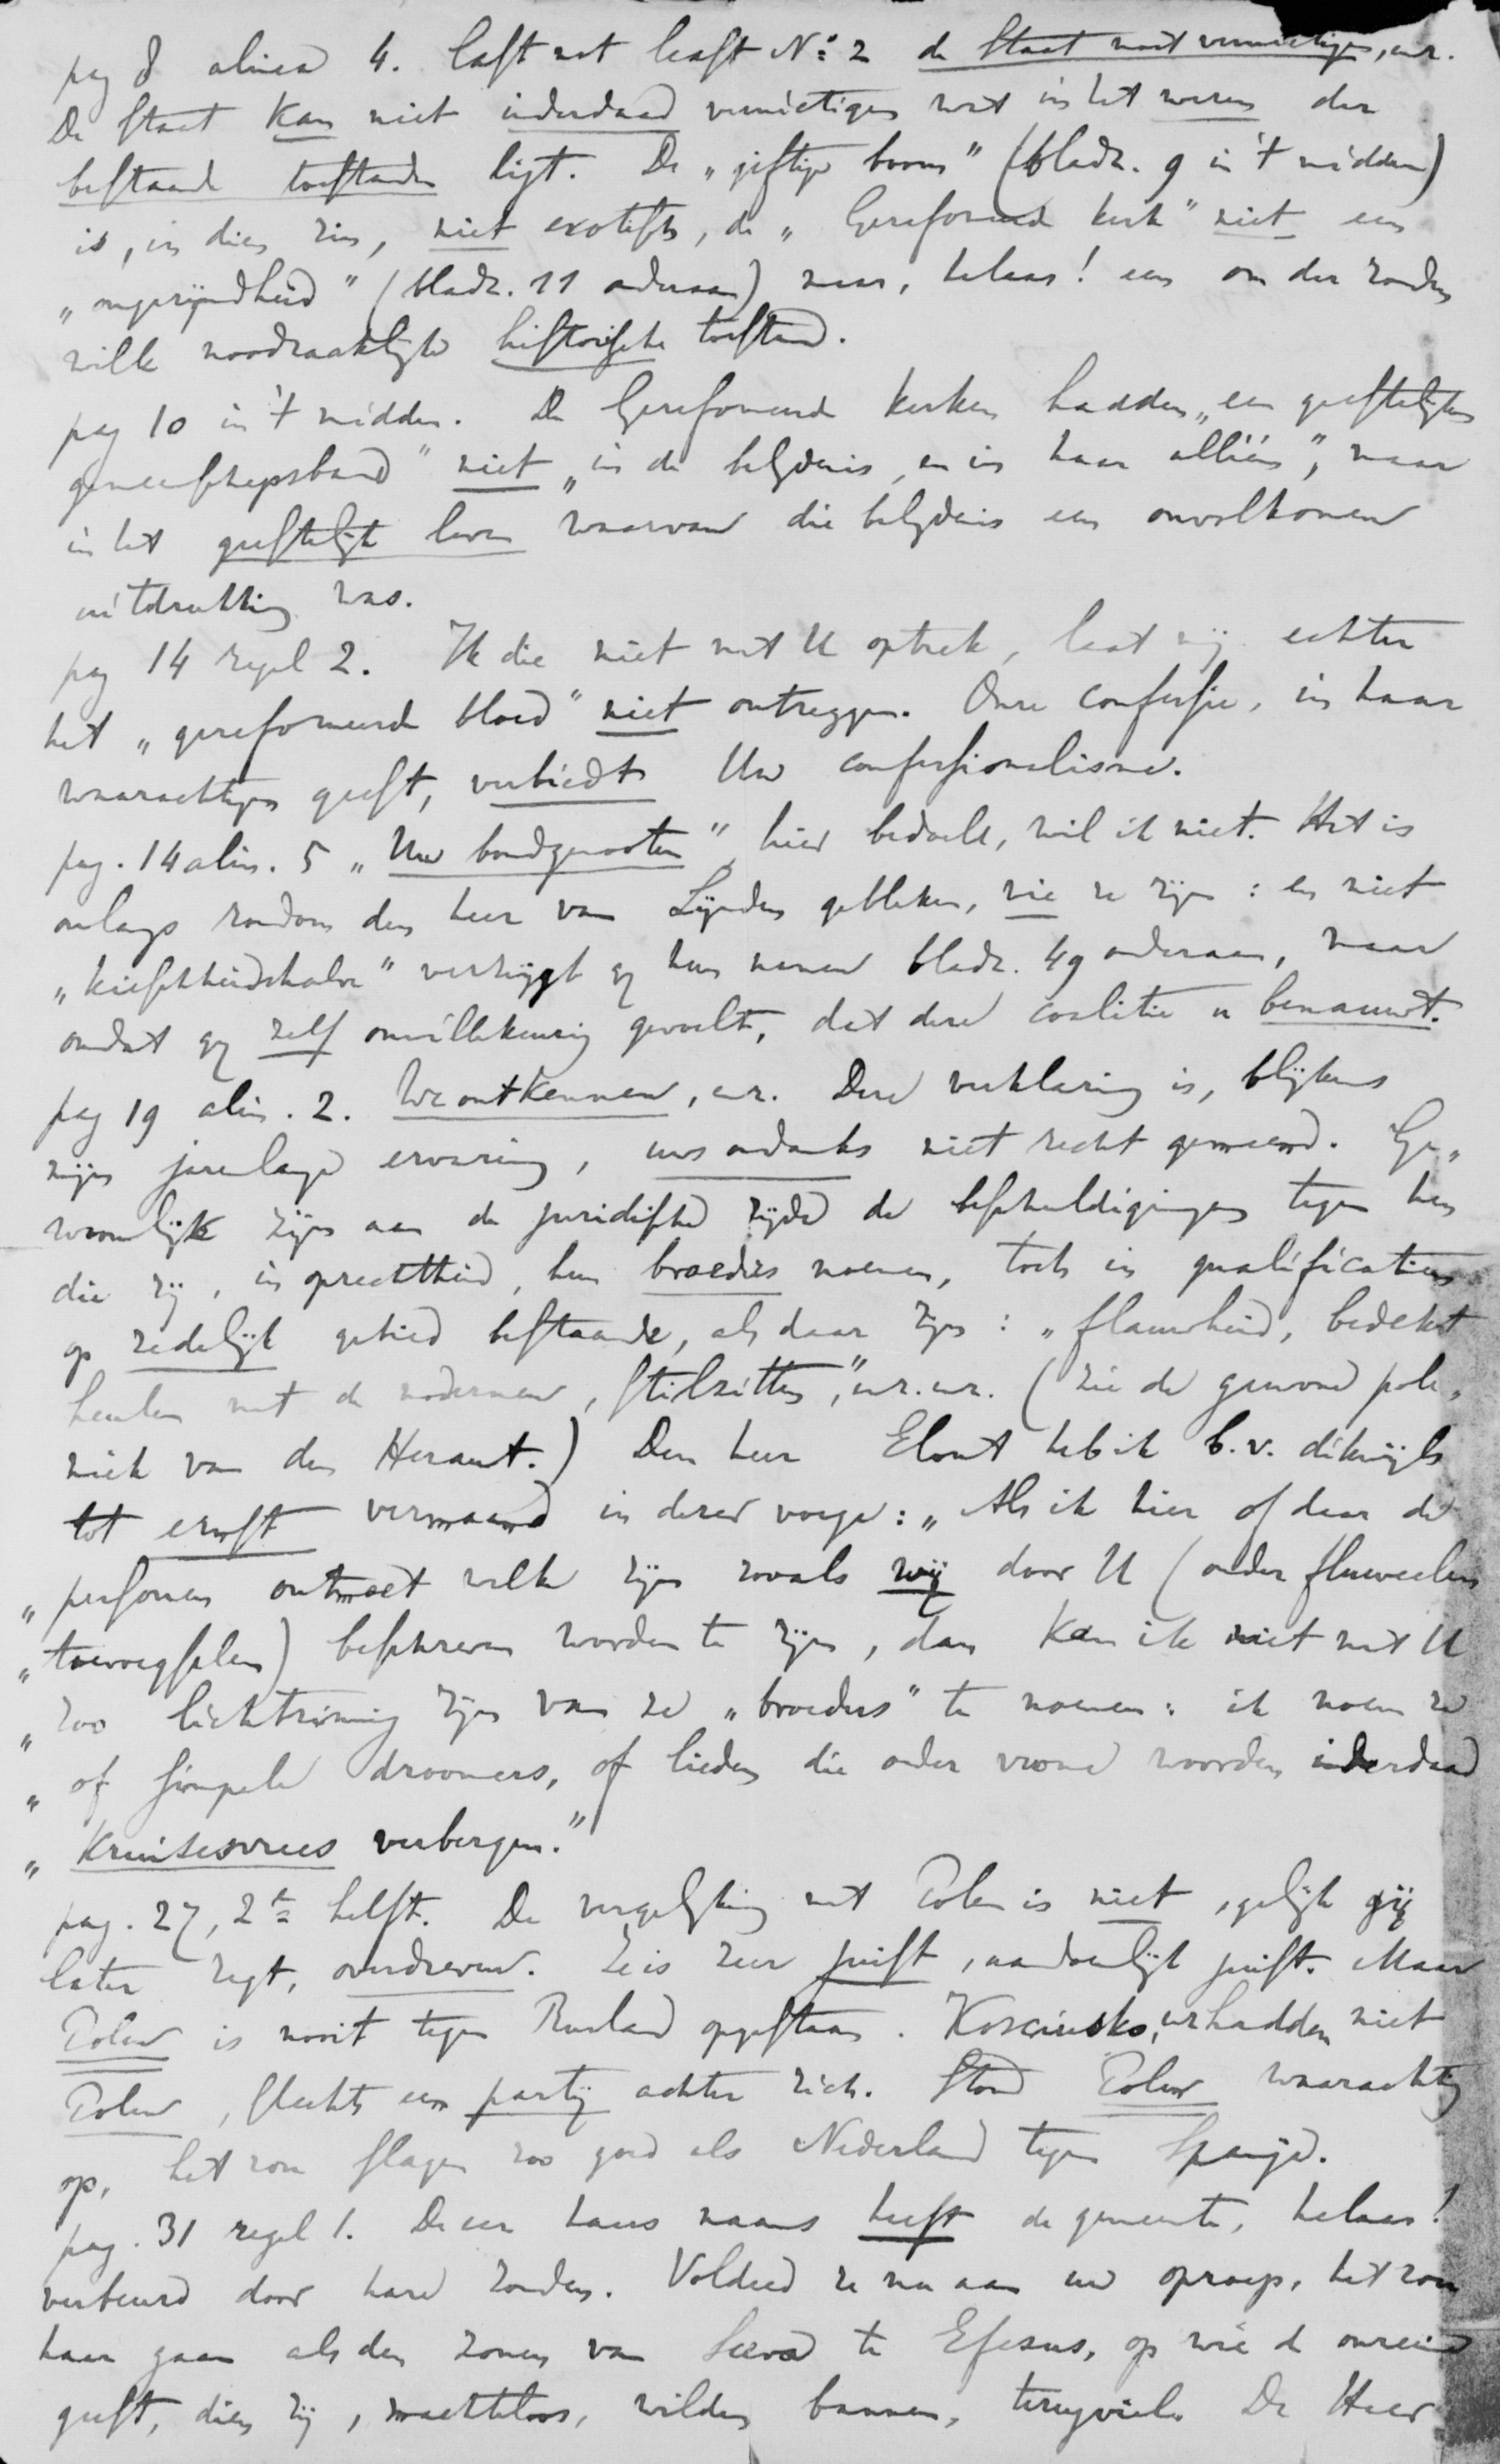 pag 8 alinea 4. laatst not leest No 2 de Staat moet vernietigen, enz.
De staat kan niet inderdaad vernietigen wat in het wezen der
bestaande toestanden ligt. De „giftige boom" (bladz. 9 in 't midden)
is, in dien zin, niet exotisch, de „Gereformeerde kerk" niet een
„ongerijmdheid" (bladz. 11 onderaan) maar, helaas! een om der zonden
wille noodzaaklijke historische toestand.
pag 10 in 't midden. De Gereformeerde kerken hadden „een geestelijken
gemeenschapsband" niet „in de belydenis en in haar alléén", maar
in het geestelijk leven waarvan die belydenis een onvolkomen
uitdrukking was.
pag 14 regel 2. Ik die niet met U optrek, laat mij echter
het „gereformeerde bloed" niet ontzeggen. Onze confessie, in haar
waarachtigen geest, verbiedt Uw confessionalisme.
pag. 14 alin. 5 „Uw bondgenooten" hier bedoeld, wil ik niet. Het is
onlangs rondom den heer van Lijnden gebleken, wie ze zijn: en niet
„kieschheidshalve" verzwijgt gij hun namen bladz. 49 onderaan, maar
omdat gij zelf onwillekeurig gevoelt, dat deze coalitie u benauwt.
pag 19 alin. 2. We ontkennen, enz. Deze verklaring is, blijkens
mijn jarenlange ervaring, uws ondanks niet recht gemeend. Ge„
woonlijk zijn aan de juridische zijde de beschuldigingen tegen hen
die zij, in oprechtheid, hun broeders noemen, toch in qualificatien
op zedelijk gebied bestaande, als daar zijn: „flauwheid, bedekt
heulen met de modernen, stilzitten," enz. enz. (zie de gewone pole„
miek van den Heraut.) Den heer Elout heb ik b.v. dikwijls
tot ernst vermaand in dezer voege: „Als ik hier of daar de
„personen ontmoet welke zijn zooals wij door U (onder fluweelen
„toevoegselen) beschreven worden te zijn, dan kan ik niet met U
„zoo lichtzinnig zijn van ze „broeders" te noemen: ik noem ze
„of simpele droomers, of lieden die onder vrome woorden inderdaad
„Kruisesvrees verbergen."
pag. 27, 2de helft. De vergelyking met Polen is niet, gelijk gij
later zegt, overdreven. Ze is zeer juist, aandoenlijk juist. Maar
Polen is nooit tegen Rusland opgestaan. Kosciusko, enz hadden niet
Polen, slechts een partij achter zich. Stond Polen waarachtig
op, het zou slagen zoo goed als Nederland tegen Spanje.
pag. 31 regel 1. De eer haars naams heeft de gemeente, helaas!
verbeurd door hare zonden. Voldeed ze nu aan uw oproep, het zou
haar gaan als den zonen van Sceva te Efesus, op wie d onreine
geest, dien zij, machteloos, wilden bannen, terugviel. De Heer